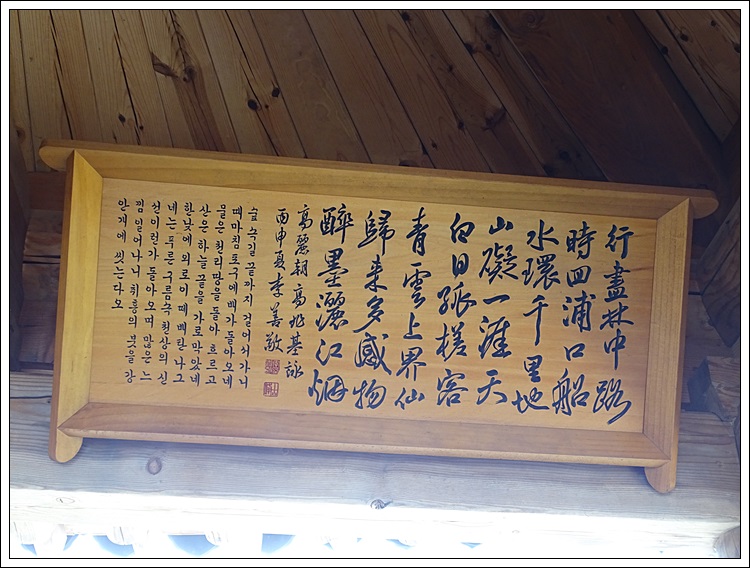 行盡林中路
時回浦口船
水環千里地
山礙一涯天
白日孤槎客
青雲上界仙
歸来多感物
醉墨灑江烟
高麗朝高兆基詠
丙申夏李善敬
숲 속길 끝까지 걸어서가니
때마침 포구에 배가 돌아오네
물은 천리 땅을 돌아 흐르고
산은 하늘 끝을 가로 막았네
한낮에 외로이 떼배 탄 나그
네는 푸른 구름속 천상의 신
선이런가 돌아오며 많은 느
낌 일어나니 취흥의 붓을 강
안개에 씻는다오